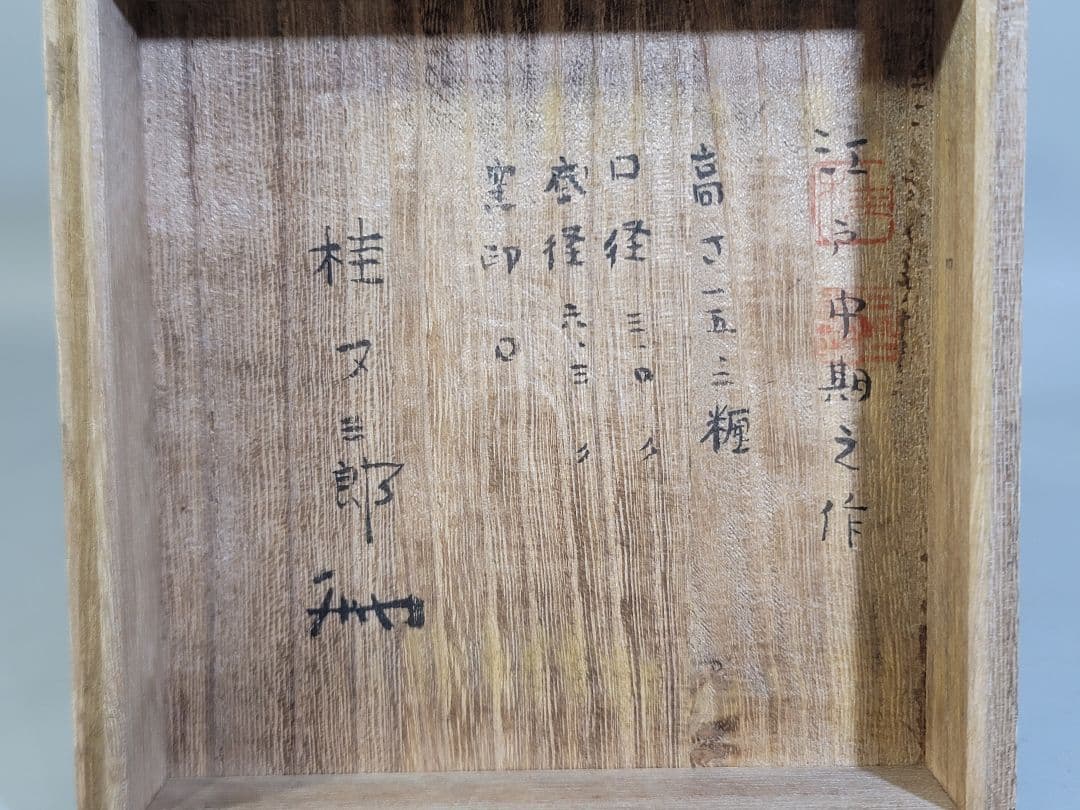 江戸中期之作
高さ一五.三糎
口径三.〇〃
底径六.三〃
窯印 〇
桂又三郎